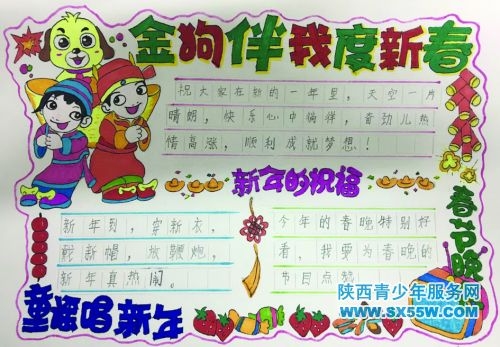 金狗伴我度新春
祝大家在新的一年里,天空一片
晴朗,快乐心中徜徉,奋劲儿热
情高涨,顺利成就梦想!
新年的祝福
新年到,穿新衣,
戴新帽,放鞭炮,
新年真热闹。
童谣唱新年
今年的春晚特别好
看,我要为春晚的
节目点赞
春节晚
陕西青少年服务网
www.sx55w.com